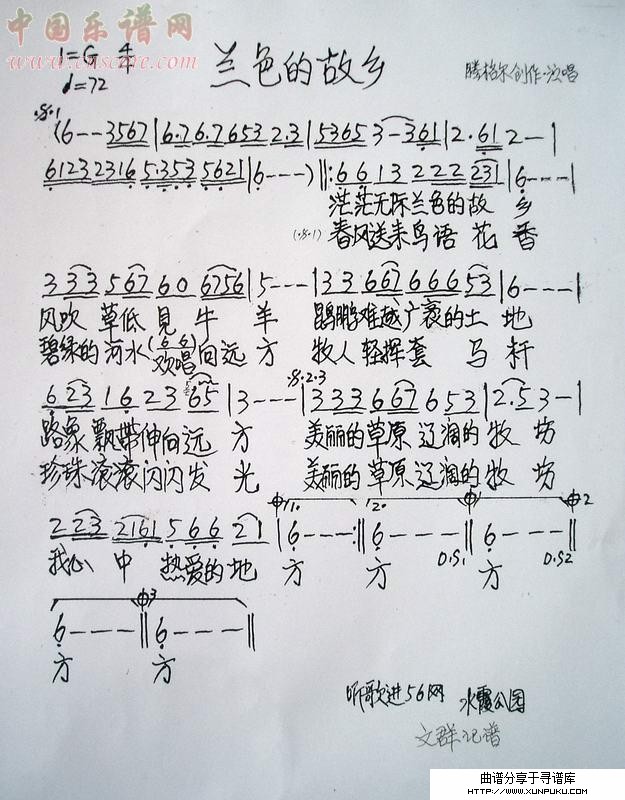 中国乐谱网
www.cnscore.com
1=G 4/4
♩=72
兰色的故乡
腾格尔创作·演唱
·𝄋·1
(6--3567|6·7 6·7 653 2·3|5365 3-361|2·61 2-|
6123 2316 5·353 5621|6---)‖:6 6 13 222 231|6---|
茫茫无际兰色的故 乡
(·𝄋·1) 春风送来鸟语花香
3 33 5 67 60 6756|5---|33 667 666 53|6---|
风吹 草低 見 牛 羊 鹍鹏难越广袤的土地
碧绿的河水(66)欢唱向远方 牧人轻挥套马杆
·𝄋·2·3
6 23 16 23 65|3---|333 667 653|2·53-|
路象飘带伸向远方 美丽的草原辽阔的牧场
珍珠滚滚闪闪发光 美丽的草原辽阔的牧场
223 2161 566 21|6---:‖6---‖6---‖
我心中 热爱的地 方 方 方
1. 2. 𝄌1 𝄌2
D.S1 D.S2
𝄌3
6---‖6---‖
方 方
听歌进56网 水霞公园
文群记谱
曲谱分享于寻谱库
HTTP://WWW.XUNPUKU.COM